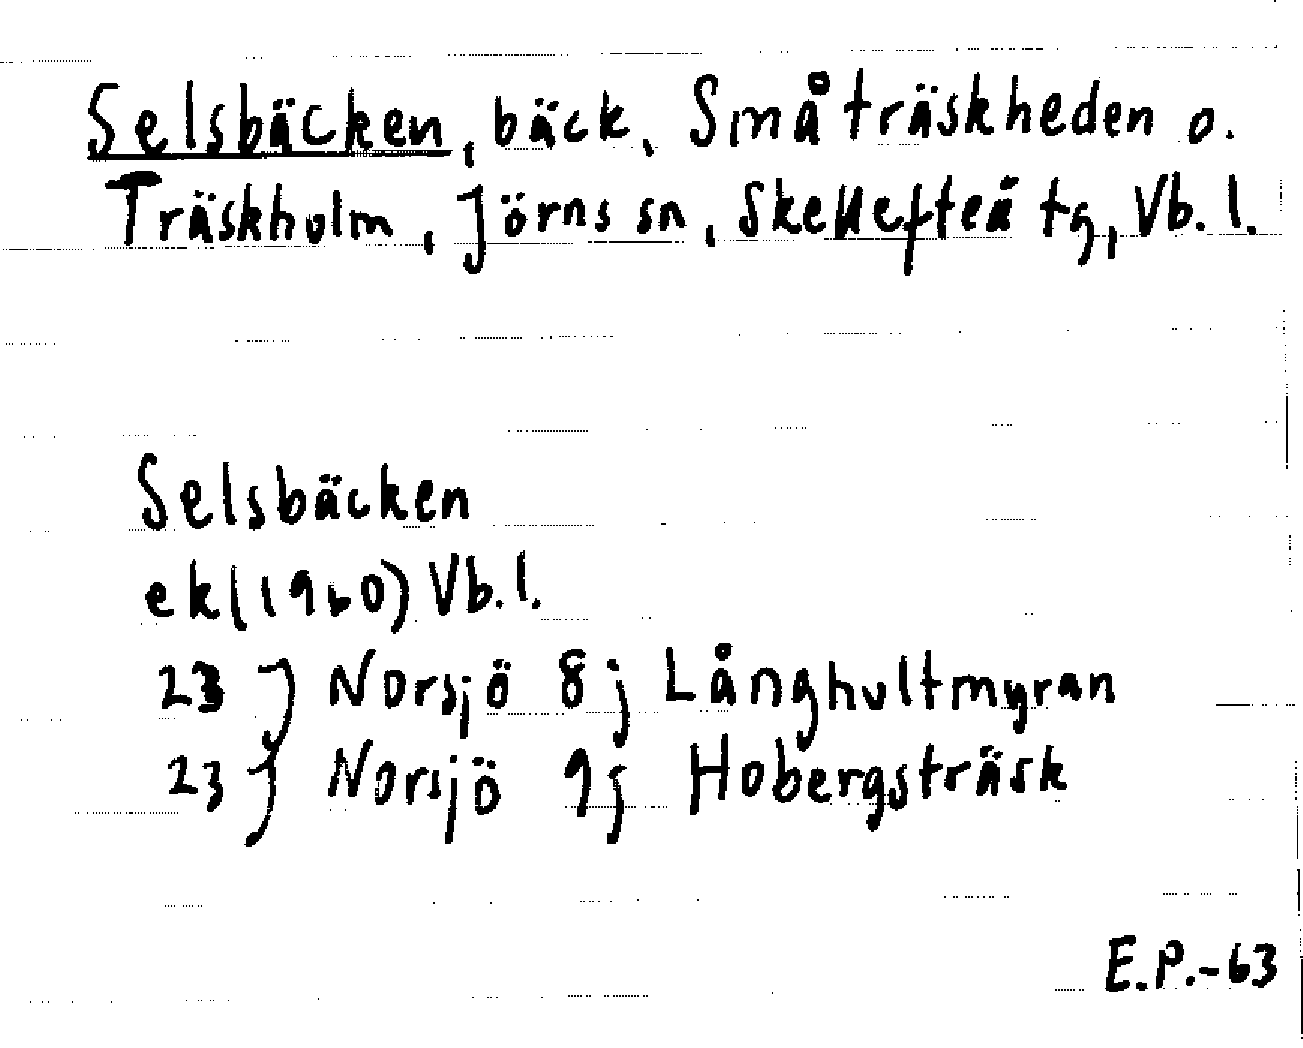 Selsbäcken, bäck, Småträskheden o.
Träskholm, Jörns sn, Skellefteå tg, Vb. l.
Selsbäcken
ek (1960) Vb. l.
23 J Norsjö 8j Långhultmyran
23 J Norsjö 9j Hobergsträsk
E.P.-63